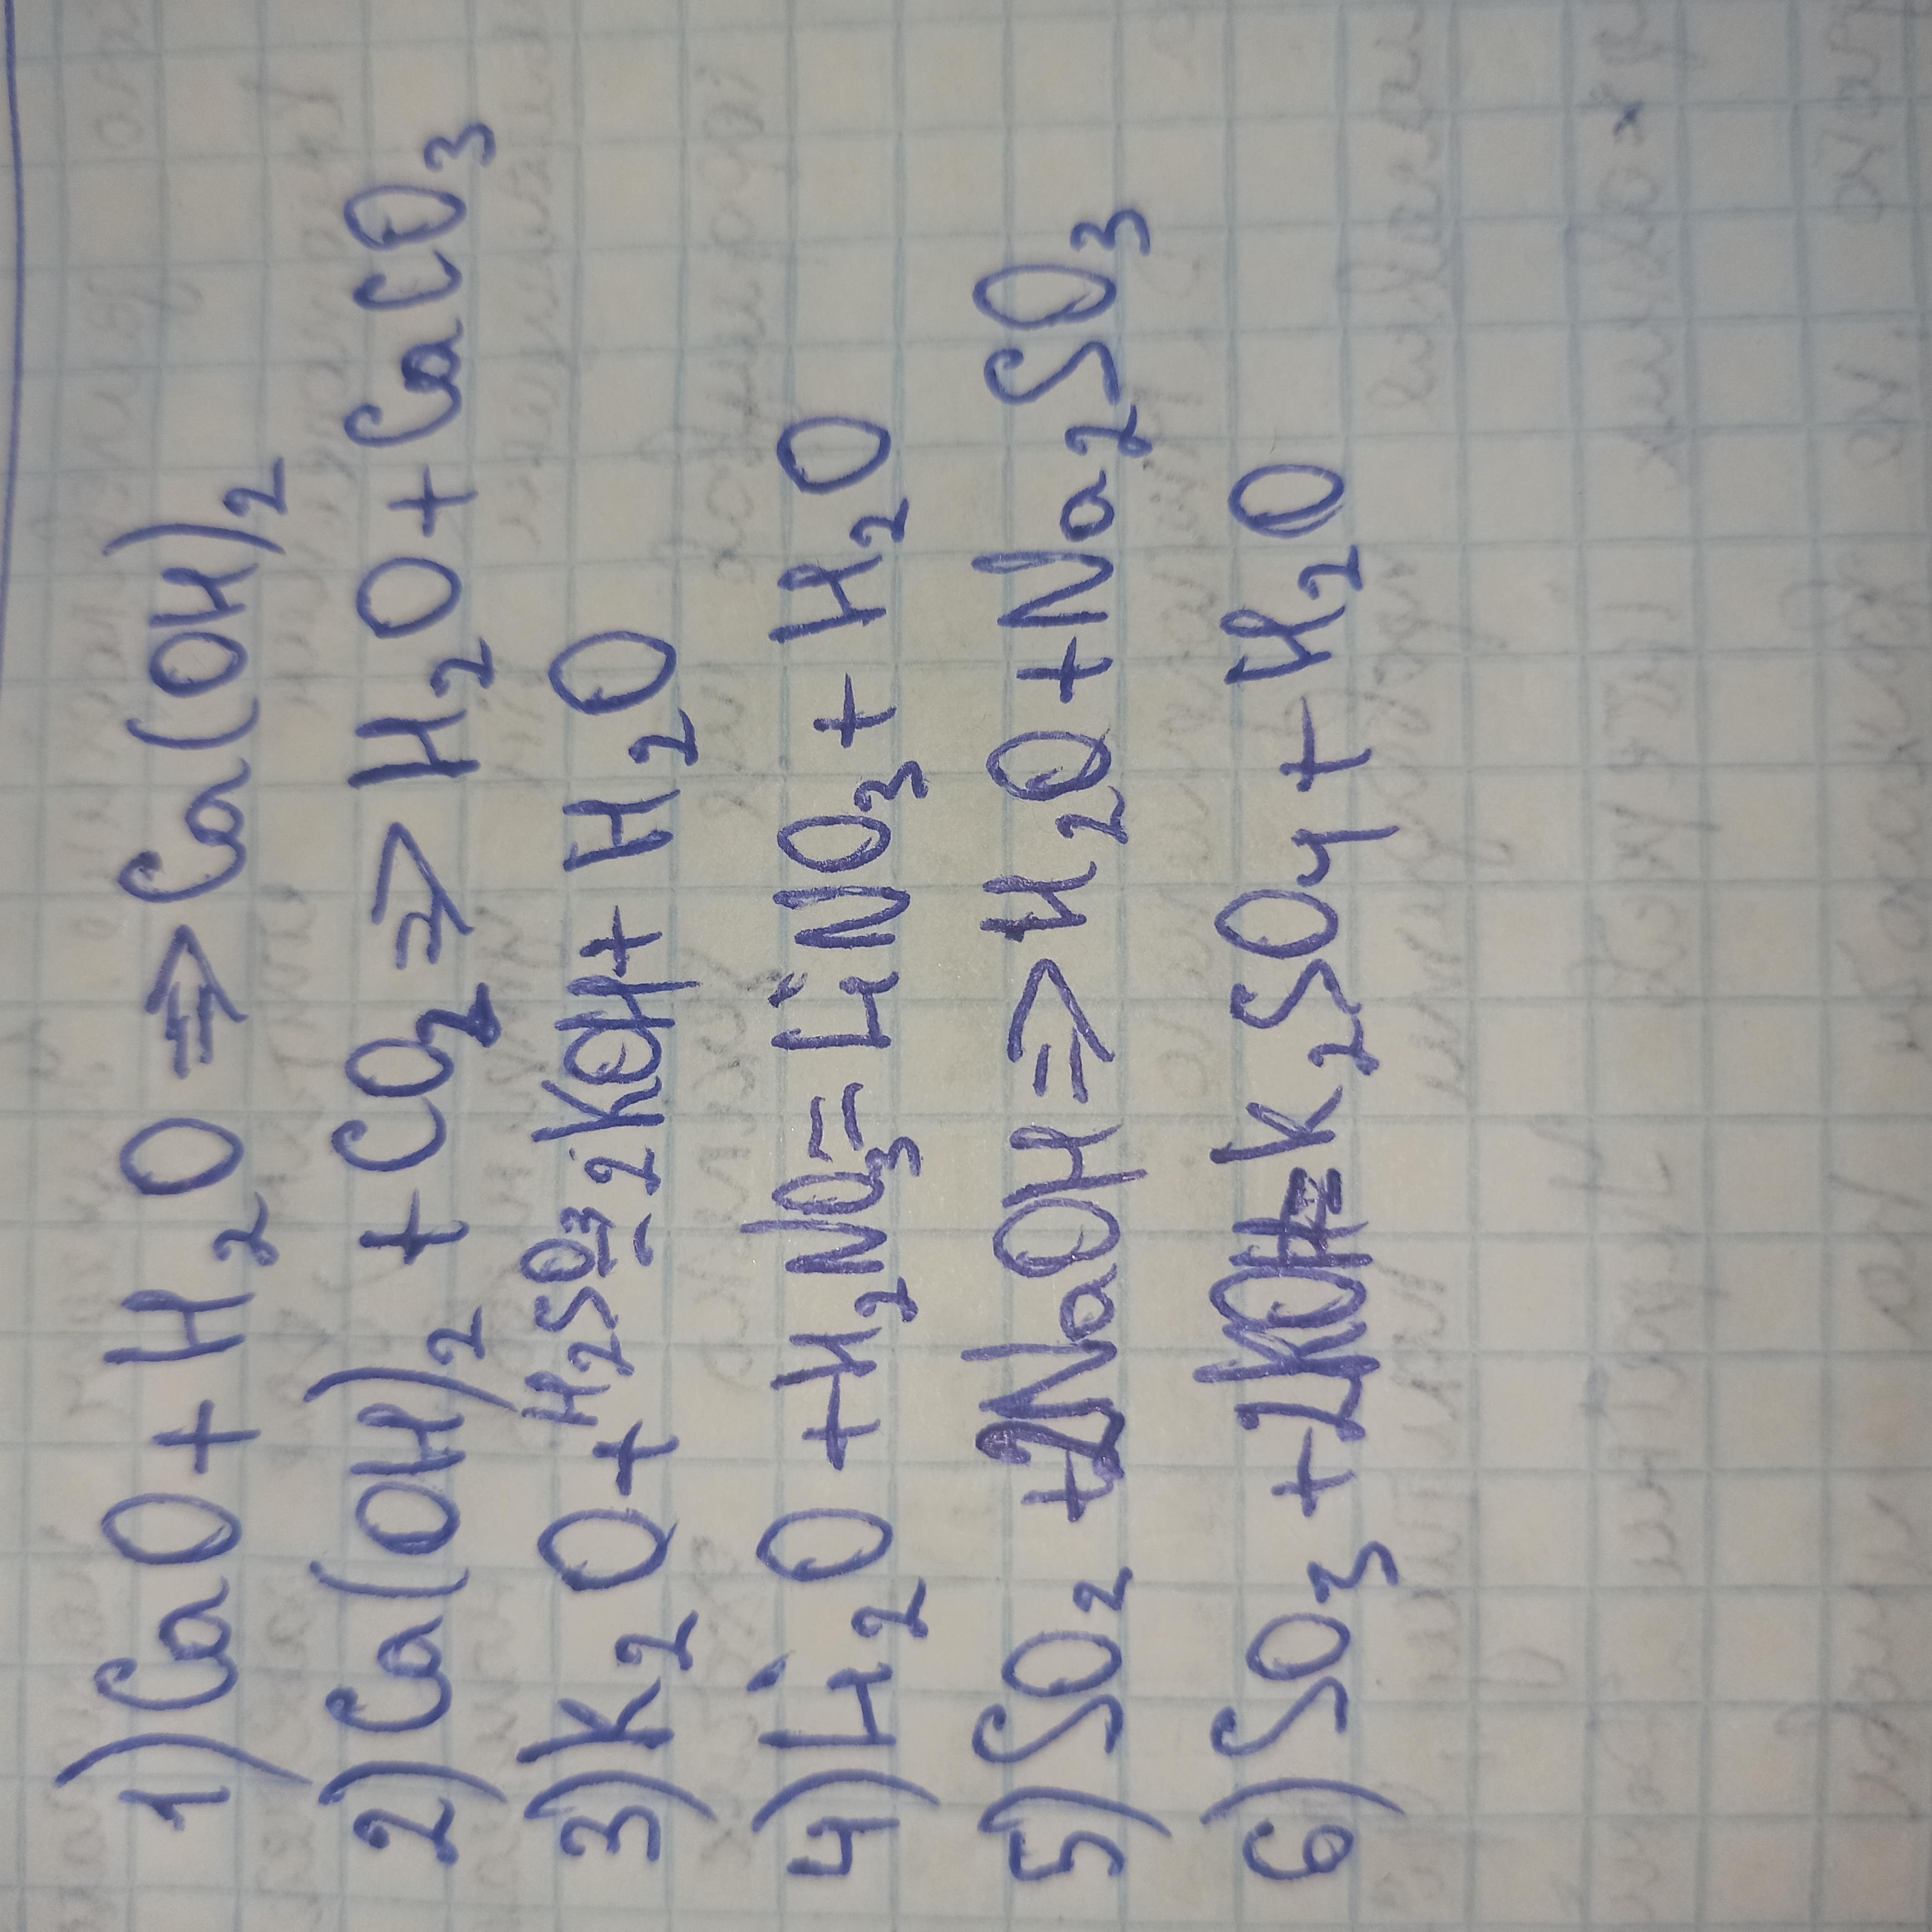 1) CaO + H₂O ⇒ Ca(OH)₂
2) Ca(OH)₂ + CO₂ ⇒ H₂O + CaCO₃
3) K₂O + H₂SO₃ = 2KOH + H₂O
4) Li₂O + H₂NO₃ = LiNO₃ + H₂O
5) SO₂ + 2NaOH ⇒ H₂O + Na₂SO₃
6) SO₃ + 2KOH = K₂SO₄ + H₂O